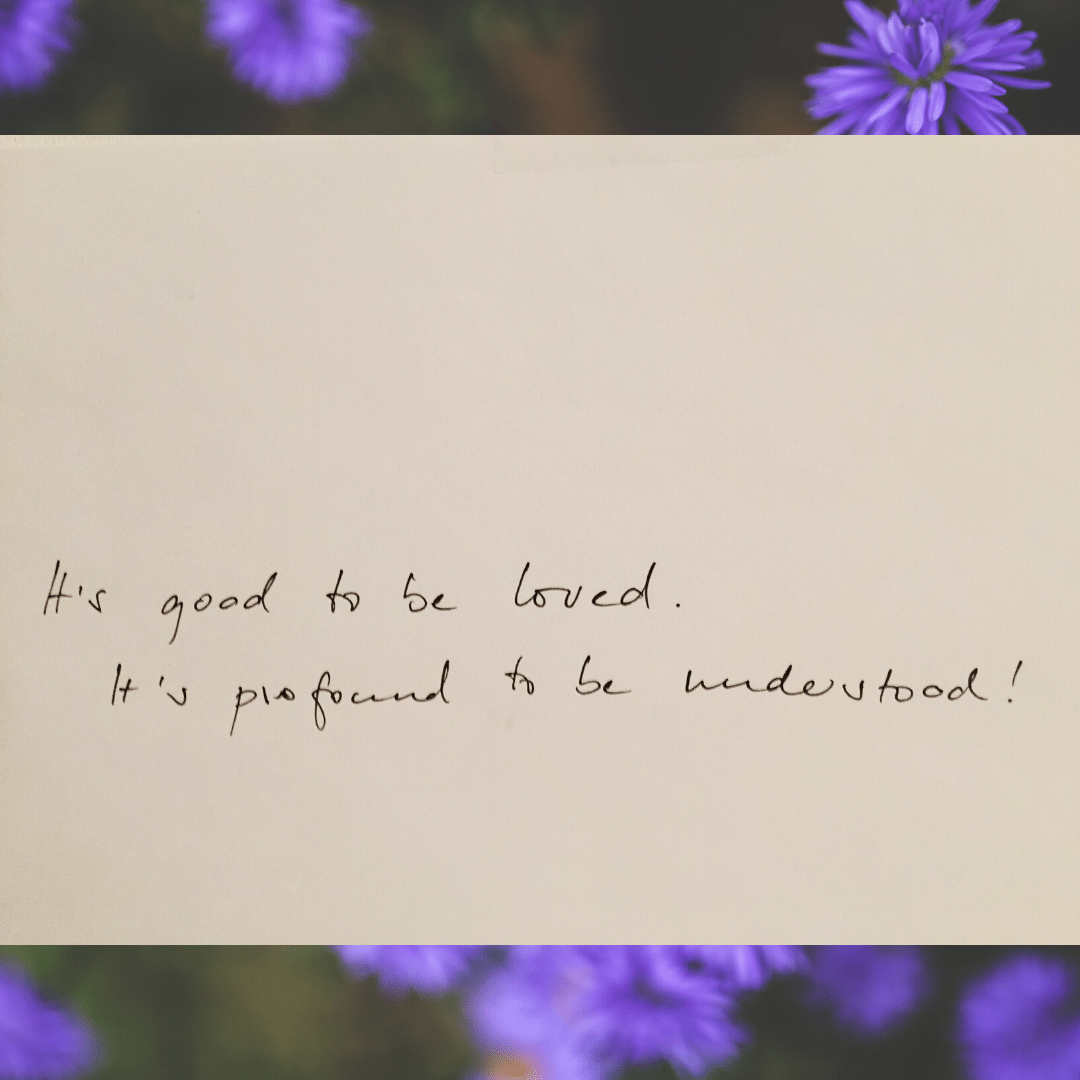 It's good to be loved.
It's profound to be understood!